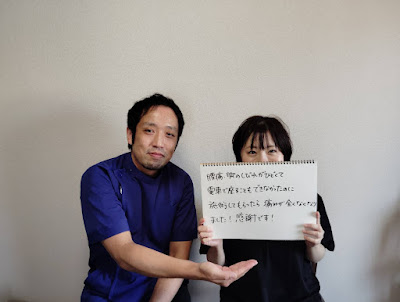 腰痛 脚のしびれがひどくて
電車で座ることもできなかったのに
施術してもらったら 痛みが全くなくなり
ました！感謝です！